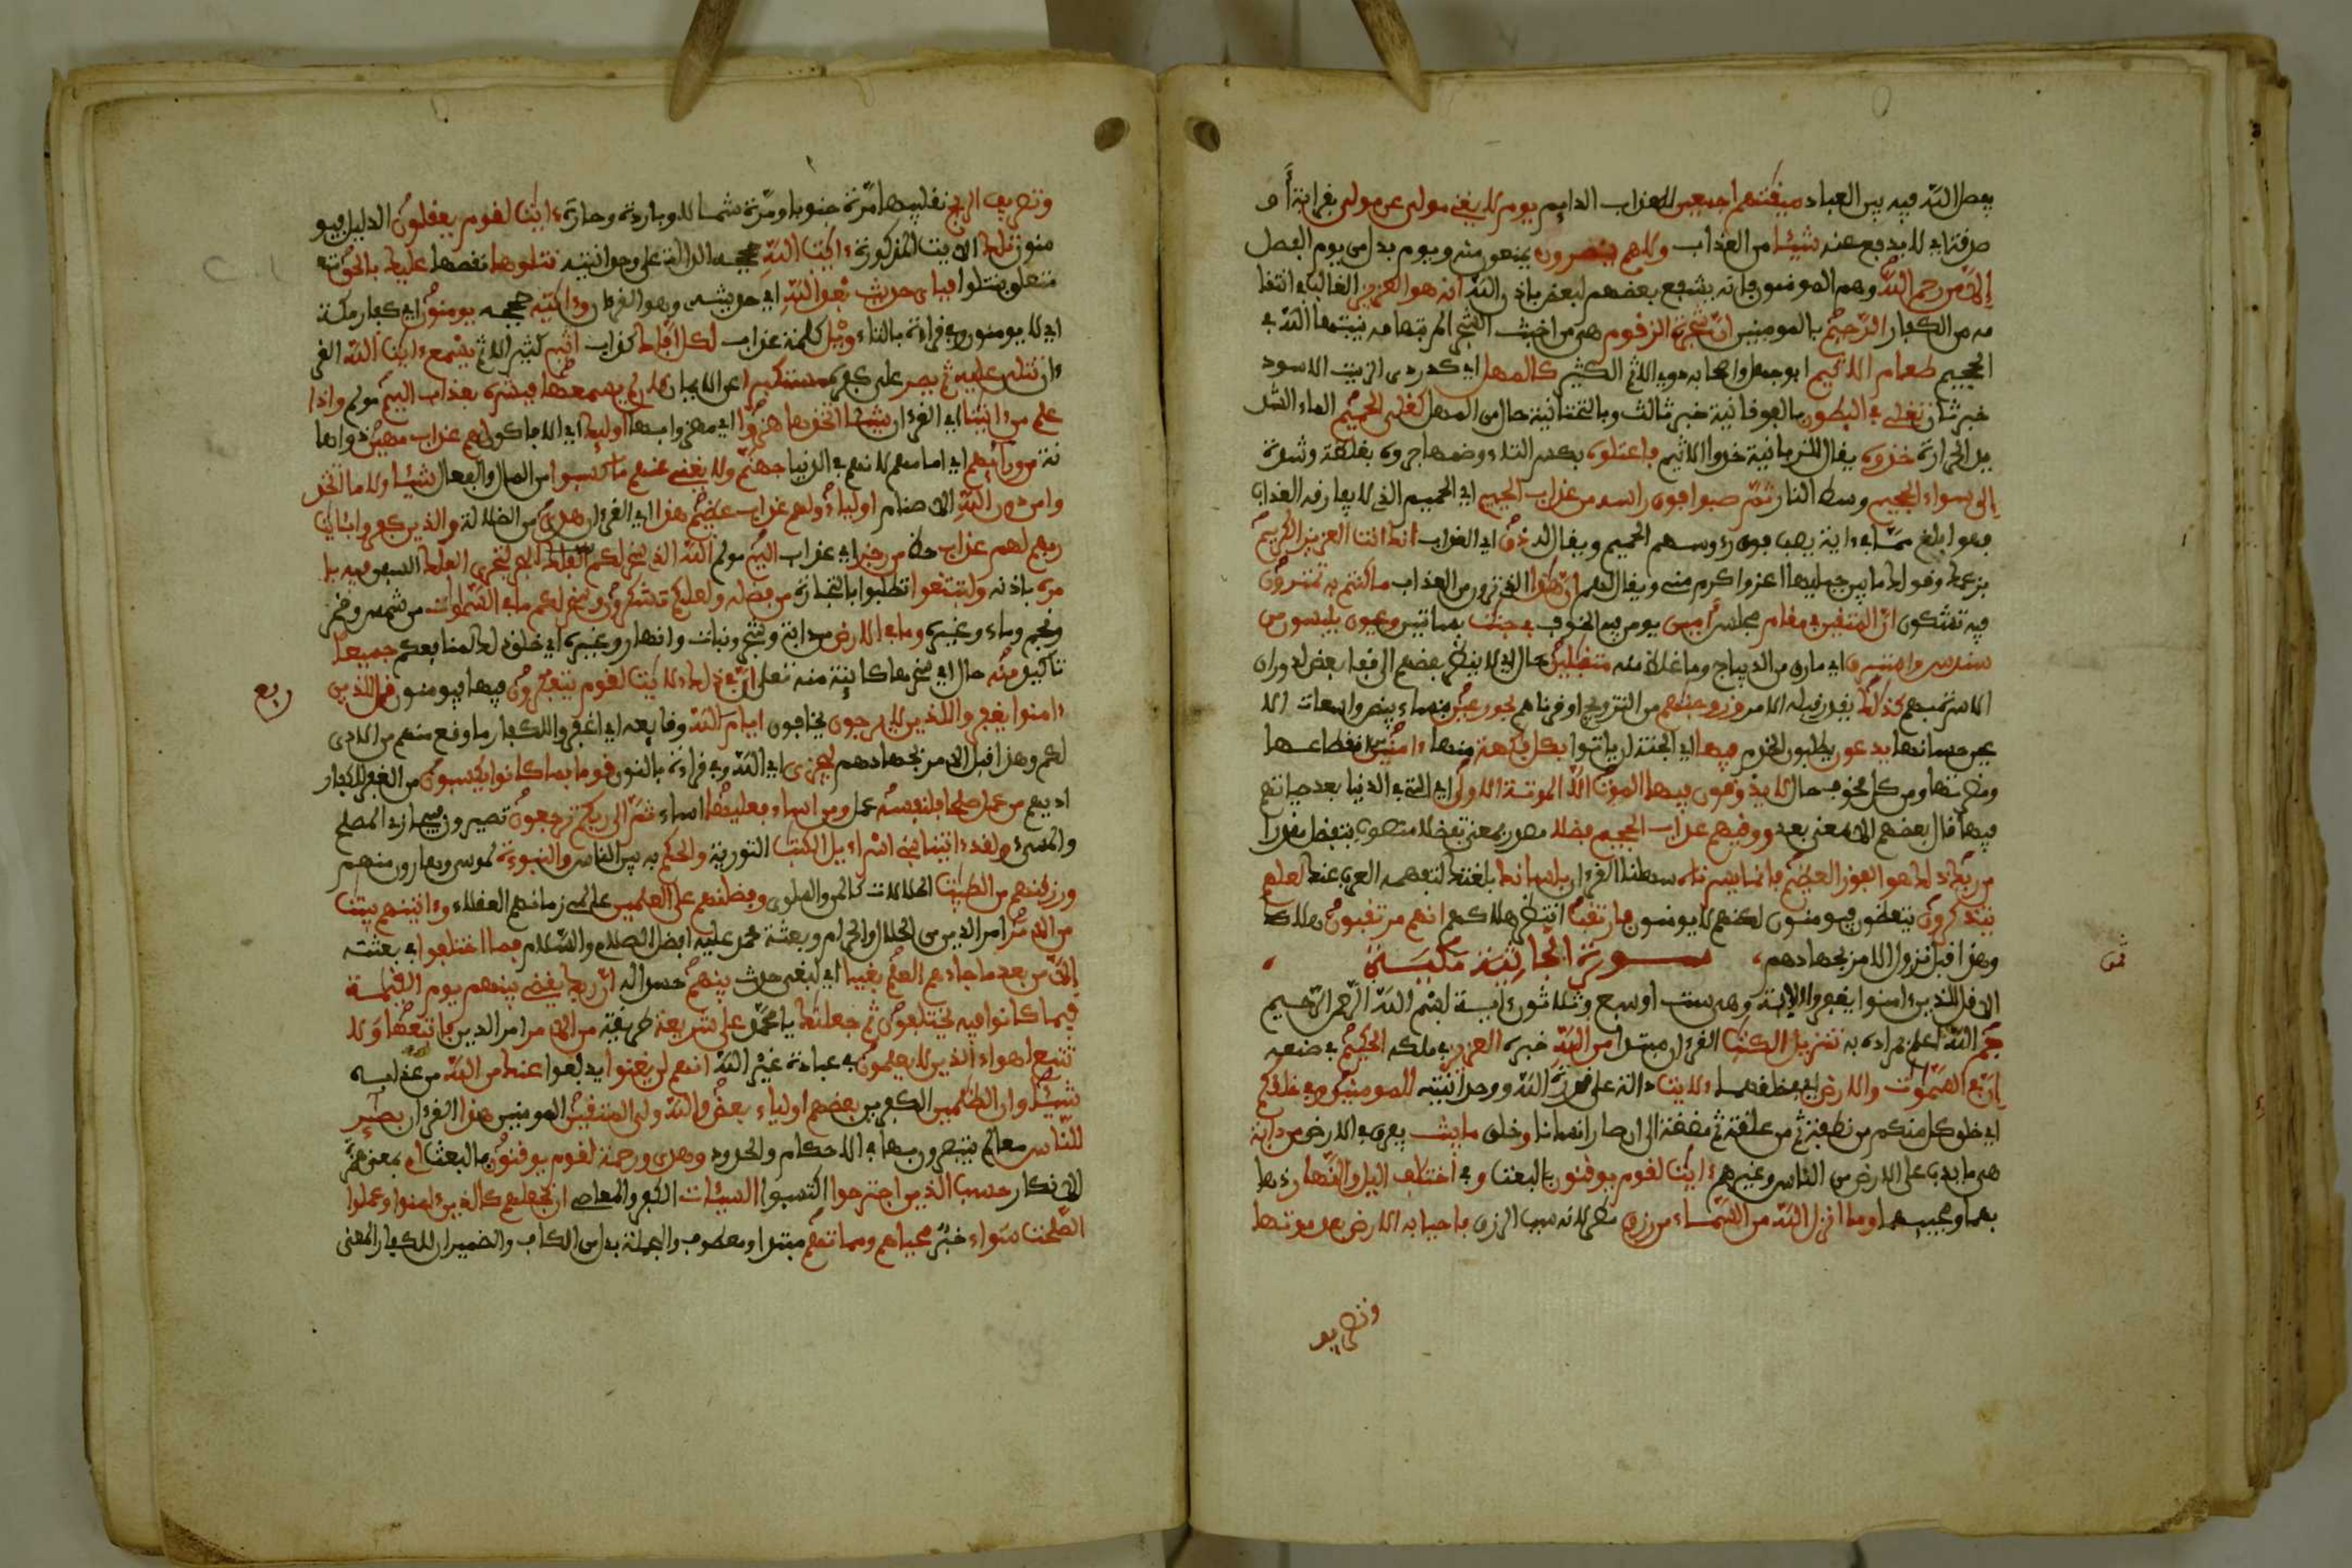 يفصل الله فيه بين العباد ميقتهم اجمعين للعذاب الدايم يوم لا يغني مولى عن مولى بقرابة أو
صدقة اي لا يدفع عنه شيئا من العذاب ولا هم ينصرون يمنعون منه ويوم بدل من يوم الفصل
إلا من رحم الله وهم المومنون فانه يشفع بعضهم لبعض باذن الله انه هو العزيز الغالب في انتقا
مه من الكفار الرحيم بالمومنين ان شجرة الزقوم هي من اخبث الشجر المر بتهامة ينبتها الله في
الجحيم طعام الاثيم ابو جهل واصحابه ذوي الاثم الكثير كالمهل اي كدردي الزيت الاسود
خبر ثان تغلي في البطون بالفوقانية خبر ثالث وبالتحتانية حال من المهل كغلي الحميم الماء الشد
يد الحرارة خذوه يقال للزبانية خذوا الاثيم فاعتلوه بكسر التاء وضمها جروه بغلظة وشدة
إلى سواء الجحيم وسط النار ثم صبوا فوق راسه من عذاب الحميم اي الحميم الذي لا يفارقه العذاب
فهو ابلغ مما في ءاية يصب من فوق رءوسهم الحميم ويقال له ذق اي العذاب انك انت العزيز الكريم
بزعمك وقولك ما بين جبليها اعز واكرم مني ويقال لهم ان هذا الذي ترون من العذاب ما كنتم به تمترون
فيه تشكون ان المتقين في مقام مجلس امين يومن فيه الخوف في جنت بساتين وعيون يلبسون من
سندس واستبرق اي مارق من الديباج وما غلظ منه متقبلين حال اي لا ينظر بعضهم الى قفا بعض لدوران
الاسرة بهم كذلك يقدر قبله الامر وزوجنهم من التزويج او قرناهم بحور عين بنساء بيض واسعات الا
عين حسانها يدعون يطلبون الخدم فيها اي الجنة ان ياتوا بكل فكهة منها ءامنين من انقطاعها
ومضرتها ومن كل مخوف حال لا يذوقون فيها الموت الا الموتة الاولى اي التي في الدنيا بعد حياتهم
فيها قال بعضهم الا بمعنى بعد ووقيهم عذاب الجحيم فضلا مصدر بمعنى تفضلا منصوب بتفضل مقدرا
من ربك ذلك هو الفوز العظيم فانما يسرنه سهلنا القرءان بلسانك بلغتك لتفهمه العرب عنك لعلهم
يتذكرون يتعظون فيومنون لكنهم لا يومنون فارتقب انتظر هلاكهم انهم مرتقبون هلاكك
وهذا قبل نزول الامر بجهادهم، سورة الجاثية مكية
الا قل للذين ءامنوا يغفروا الاية وهي ست او سبع وثلاثون ءاية بسم الله الرحمن الرحيم
حم الله اعلم بمراده به تنزيل الكتب القرءان مبتدا من الله خبره العزيز في ملكه الحكيم في صنعه
إن في السموت والارض اي في خلقهما لايت دالة على قدرة الله ووحدانيته للمومنين وفي خلقكم
اي خلق كل منكم من نطفة ثم من علقة ثم مضغة الى ان صار انسانا وخلق ما يبث يفرق في الارض من دابة
هي ما يدب على الارض من الناس وغيرهم ءايت لقوم يوقنون بالبعث وفي اختلف اليل والنهار ذهابـ
ـهما ومجييهما وما انزل الله من السماء من رزق مطر لانه سبب الرزق فاحيا به الارض بعد موتها
وتصريف
ثمن
وتصريف الريح تقليبها مرة جنوبا ومرة شمالا وباردة وحارة ءايت لقوم يعقلون الدليل فيو
منون تلك الايت المذكورة ءايت الله حججه الدالة على وحدانيته نتلوها نقصها عليك بالحق
متعلق بنتلوا فباي حديث بعد الله اي حديثه وهو القرءان وءايته حججه يومنون اي كفار مكة
اي لا يومنون وفي قراءة بالتاء ويل كلمة عذاب لكل افاك كذاب اثيم كثير الاثم يسمع ءايت الله القر
ءان تتلى عليه ثم يصر على كفره مستكبرا عن الايمان كان لم يسمعها فبشره بعذاب اليم مولم واذا
علم من ءايتنا اي القرءان شيئا اتخذها هزؤا اي مهزوا بها اولئك اي الافاكون لهم عذاب مهين ذو اها
نة من ورائهم اي امامهم لانهم في الدنيا جهنم ولا يغني عنهم ما كسبوا من المال والفعال شيئا ولا ما اتخذ
وا من دون الله الاصنام اولياء ولهم عذاب عظيم هذا اي القرءان هدى من الضلالة والذين كفروا بايت
ربهم لهم عذاب حظ من رجز اي عذاب اليم مولم الله الذي سخر لكم البحر لتجري الفلك السفن فيه با
مره باذنه ولتبتغوا تطلبوا بالتجارة من فضله ولعلكم تشكرون وسخر لكم ما في السموات من شمس وقمر
ونجم وماء وغيره وما في الارض من دابة وشجر ونبات وانهار وغيره اي خلق ذلك لمنافعكم جميعا
تاكيد منه حال اي سخرها كاينة منه تعلى ان في ذلك لايت لقوم يتفكرون فيها فيومنون قل للذين
ءامنوا يغفروا للذين لا يرجون يخافون ايام الله وقايعه اي اغفروا للكفار ما وقع منهم من الاذى
لكم وهذا قبل الامر بجهادهم ليجزي اي الله وفي قراءة بالنون قوما بما كانوا يكسبون من الغفر للكفار
اذيهم من عمل صلحا فلنفسه عمل ومن اساء فعليها اساء ثم الى ربكم ترجعون تصيرون فيجازي المصلح
والمسيء ولقد ءاتينا بني اسراءيل الكتب التورية والحكم به بين الناس والنبوءة لموسى وهارون منهم
ورزقنهم من الطيبت الحلالات كالمن والسلوى وفضلنهم على العلمين عالمي زمانهم العقلاء وءاتينهم بينت
من الامر امر الدين من الحلال والحرام وبعثة محمد عليه افضل الصلاة والسلام فما اختلفوا في بعثته
إلا من بعد ما جاءهم العلم بغيا اي لبغي حدث بينهم حسدا له ان ربك يقضي بينهم يوم القيمة
فيما كانوا فيه يختلفون ثم جعلنك يا محمد على شريعة طريقة من الامر امر الدين فاتبعها ولا
تتبع اهواء الذين لا يعلمون في عبادة غير الله انهم لن يغنوا يدفعوا عنك من الله من عذابه
شيئا وان الظلمين الكفرين بعضهم اولياء بعض والله ولي المتقين المومنين هذا القرءان بصئر
للناس معالم يتبصرون بها في الاحكام والحدود وهدى ورحمة لقوم يوقنون بالبعث ام بمعنى همزة
الانكار حسب الذين اجترحوا اكتسبوا السيئات الكفر والمعاصي ان نجعلهم كالذين ءامنوا وعملوا
الصلحت سواء خبر محياهم ومماتهم مبتدا ومعطوف والجملة بدل من الكاف والضميران للكفار المعنى
ربع